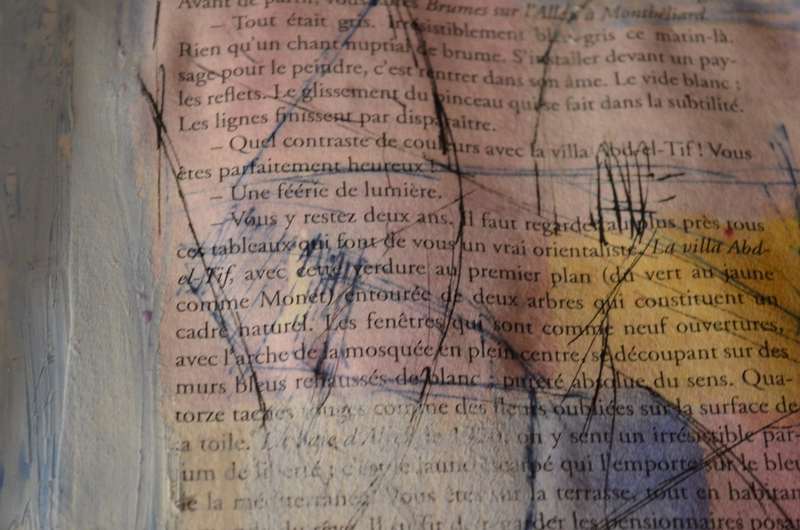 Avant de partir, vous Brumes sur l'Allan à Montbéliard.
– Tout était gris. Irrésistiblement bleu-gris ce matin-là.
Rien qu'un chant nuptial de brume. S'installer devant un pay-
sage pour le peindre, c'est rentrer dans son âme. Le vide blanc ;
les reflets. Le glissement du pinceau qui se fait dans la subtilité.
Les lignes finissent par disparaître.
– Quel contraste de couleurs avec la villa Abd-el-Tif ! Vous
êtes parfaitement heureux !
– Une féérie de lumière.
– Vous y restez deux ans. Il faut regarder au plus près tous
ces tableaux qui font de vous un vrai orientaliste. La villa Abd-
el-Tif, avec cette verdure au premier plan (du vert au jaune
comme Monet) entourée de deux arbres qui constituent un
cadre naturel. Les fenêtres qui sont comme neuf ouvertures,
avec l'arche de la mosquée en plein centre, se découpant sur des
murs bleus rehaussés de blanc : pureté absolue du sens. Qua-
torze taches rouges comme des fleurs oubliées sur la surface de
la toile. La baie d'Alger, le on y sent un irrésistible par-
um de liberté ; c'est le jaune escarpé qui l'emporte sur le bleu
de la méditerranée. Vous êtes sur la terrasse, tout en habitan
Il suffit de regarder les pensionnaires posa